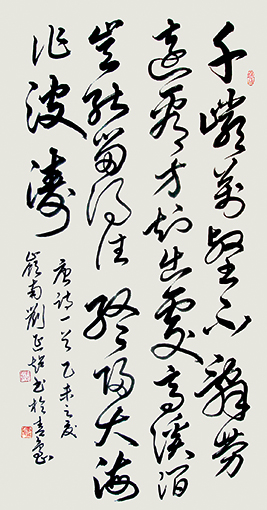 千巖萬壑不辭勞
遠看方知出處高溪澗
豈能留得住終歸大海
作波濤
唐詩一首乙未之夏
嶺南劉延書於